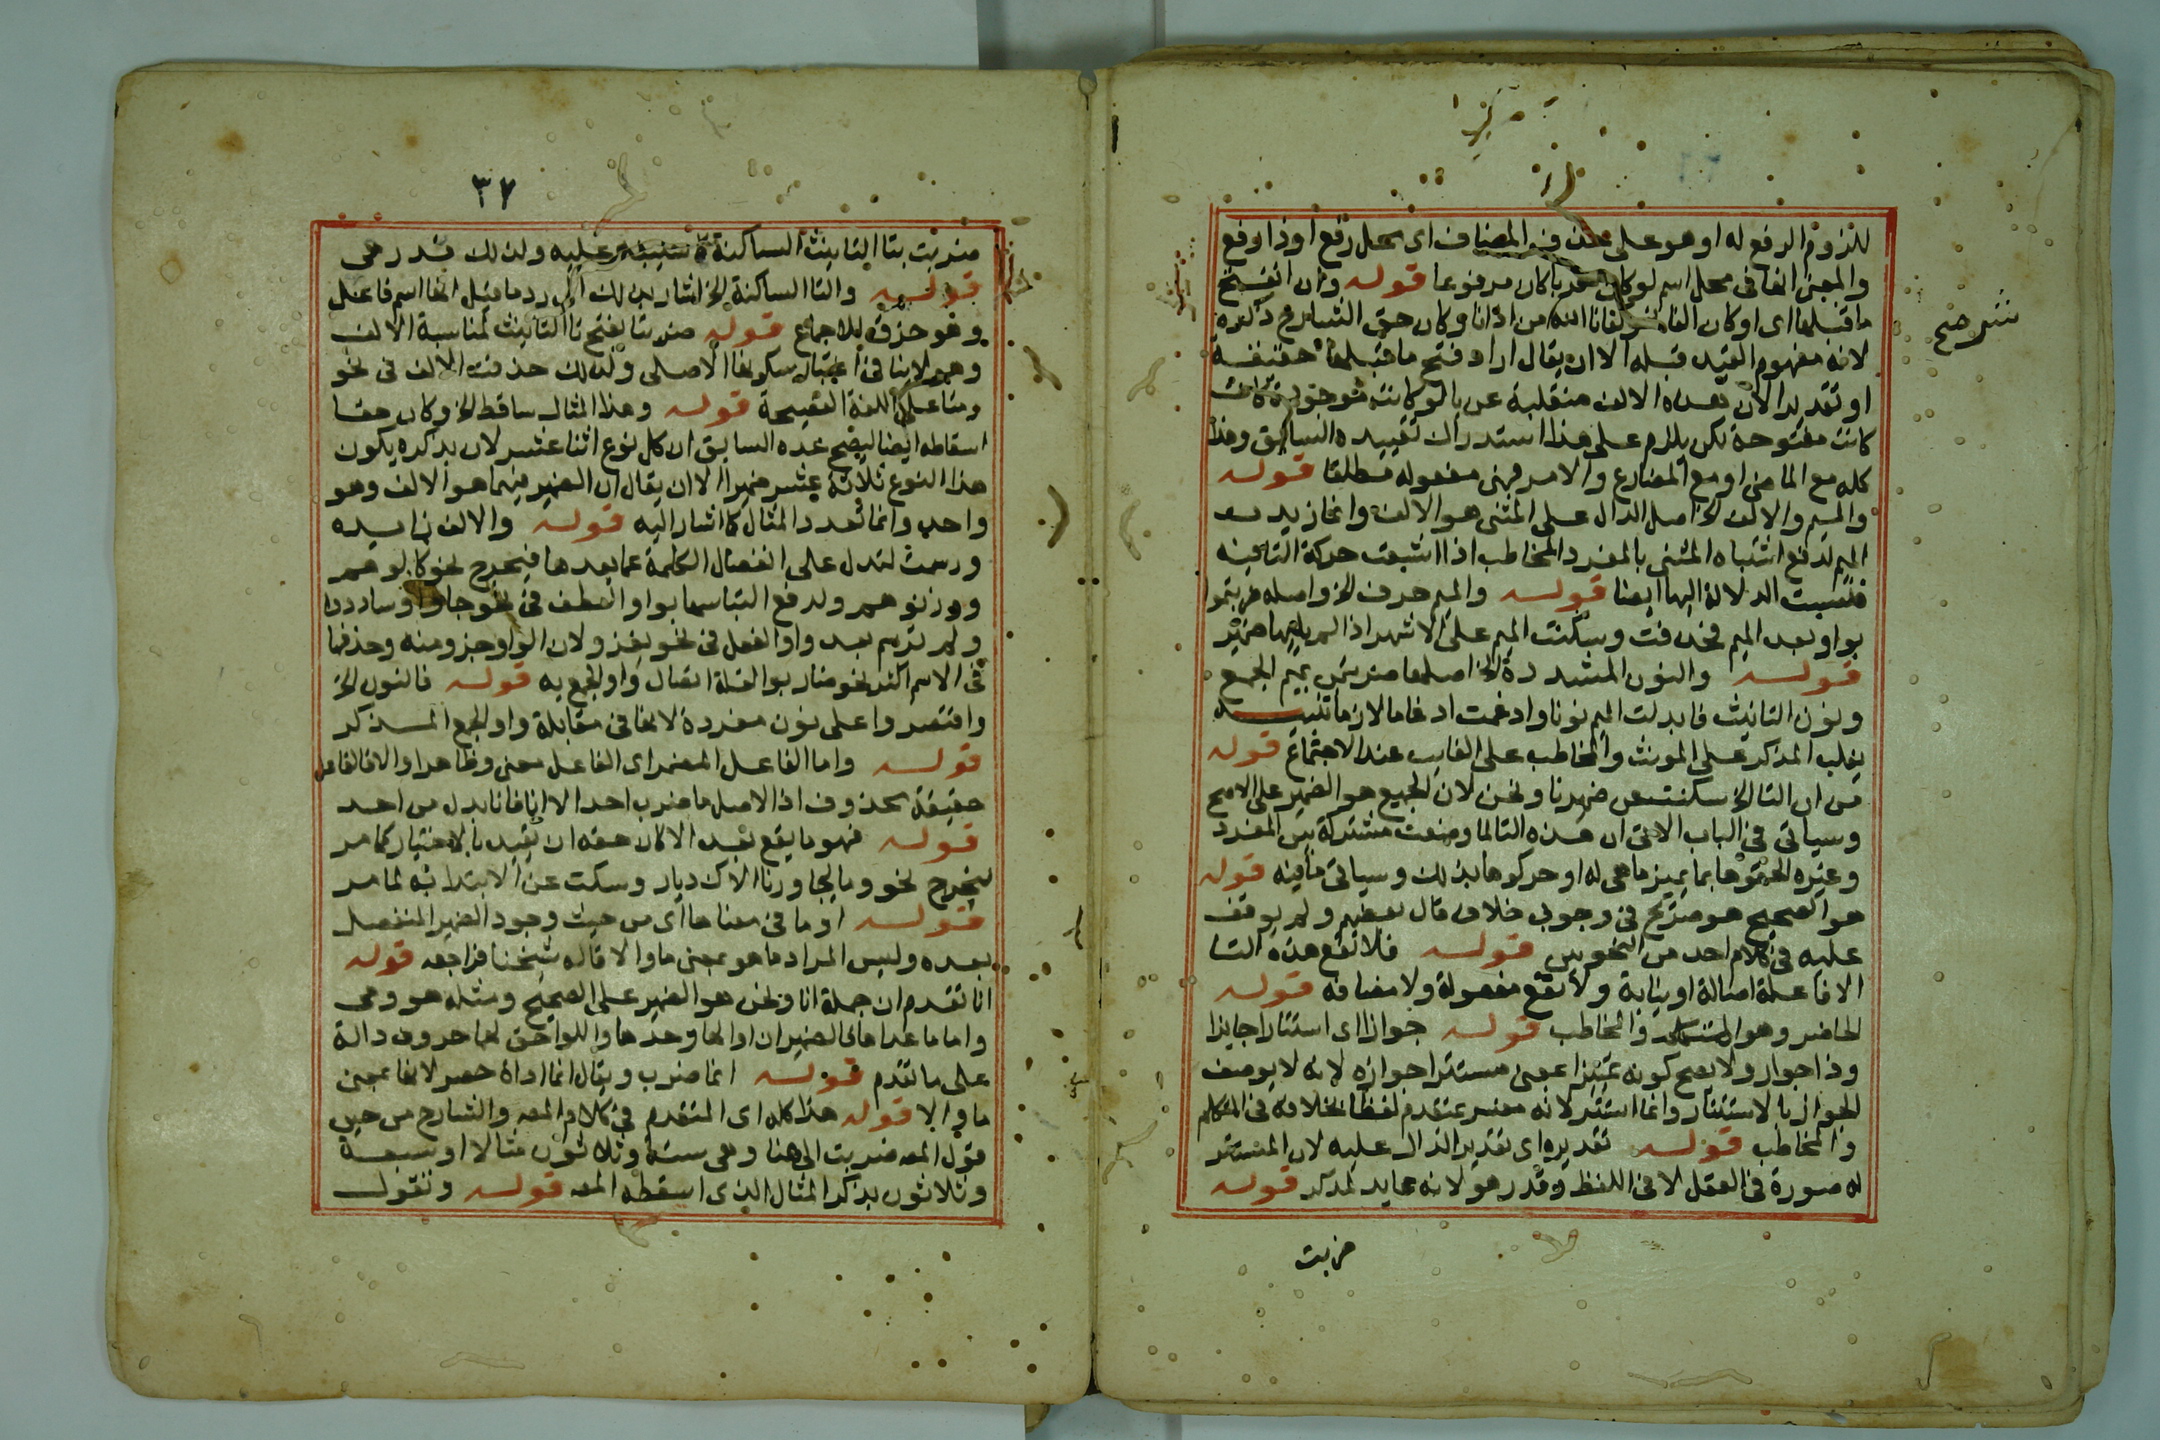 للزوم الرفع له او هو على حذف المضاف اى محل رفع او ذا رفع
والمعنى انها فى محل اسم لو كان معربا كان مرفوعا قوله وان انفتح
ما قبلها اى او كان الفا وكان حق الشارح ذكره
لانه مفهوم القيد قبله الا ان يقال اراد فتح ما قبلها حقيقة
او تقديرا لان هذه الالف منقلبة عن
كانت مفتوحة لكن يلزم على هذا استدراك تقييده السابق وهذا
كله مع الماضى او مع المضارع والامر فهى مفعوله مطلقا قوله
والميم والالف الخ اصل الدال على المثنى هو الالف وانما زيدت
الميم لدفع اشتباه المثنى بالمفرد المخاطب اذا اشبعت حركة التا
فنسبت الدلالة اليها ايضا قوله والميم حرف الخ واصله ضربتموا
بواو بعد الميم فحذفت وسكنت الميم على الاشهر اذا لم يلها ضمير
قوله والنون المشددة الخ اصلها ضربتمن بميم الجمع
ونون التانيث فابدلت الميم نونا وادغمت ادغاما لازما تنبيه
يغلب المذكر على المونث والمخاطب على الغايب عند الاجتماع قوله
من ان التا الخ سكنت عن ضهرنا ونحن لان الجميع هو الضمير على الاصح
وسياتى فى الباب الاتى ان هذه التا لما وضعت مشتركة بين المفرد
وغيره الحقوها بما يميز ما هى له او حركوها بذلك وسياتى ما فيه قوله
هو الصحيح هو صريح فى وجود خلاف قال بعضهم ولم يوقف
عليه فى كلام احد من النحويين قوله فلا تقع هذه التا
الا فاعلة اصالة او نيابة ولا تقع مفعولة ولا مضافه قوله
الحاضر وهو المتكلم والمخاطب قوله جوازا اى استتارا جايزا
وذا جواز ولا يصح كونه تمييزا بمعنى مستترا جوازه لانه لا يوصف
الجواز بالاستتار وانما استتر لانه مفسر بمتقدم لفظا بخلافه فى المتكلم
والمخاطب قوله تقديره اى تقدير الدال عليه لان المستتر
له صورة فى العقل لا فى اللفظ وقدر هو لانه عايد لمذكر قوله
ضربت
٣٧
ضربت بتا التانيث الساكنة عليه ولذلك قدر هى
قوله والتا الساكنة الخ اشار بذلك الى رد ما قيل انها اسم فاعل
وهو خرق للاجماع قوله ضربتا بفتح تا التانيث لمناسبة الالف
وهو لا ينافى اعتبار سكونها الاصلى ولذلك حذفت الالف فى نحو
رمتا على اللغة الفصيحة قوله وهذا المثال ساقط الخ وكان حقا
اسقاطه ايضا ليصح عده السابق ان كل نوع اثنا عشر لان بذكره يكون
هذا النوع ثلاثة عشر ضميرا الا ان يقال ان الضمير فيهما هو الالف وهو
واحد وانما تعدد المثال كما اشار اليه قوله والالف زايده
ورسمت لتدل على انفصال الكلمة عما بعدها فيخرج نحو كالوهم
ووزنوهم ولدفع التباسها بواو العطف فى نحو جاوا وسادوا
ولم ترسم بعد واو الفعل فى نحو يغزو لان الواو جزو منه وحذفها
فى الاسم اكثر نحو ضاربو القلة اتصال واو الجمع به قوله فالنون الخ
واقتصروا على نون مفردة لانها فى مقابلة واو الجمع المذكر
قوله واما الفاعل المضمر اى الفاعل معنى وظاهرا والا فالفاعل
حقيقة محذوف اذ الاصل ما ضرب احد الا انا فانا بدل من احد
قوله فهو ما يقع بعد الا كان حقه ان يقيد بالاختيار كما مر
ليخرج نحو وما يجاورنا الاك ديار وسكت عن الابتدا به لما مر
قوله او ما فى معناها اى من حيث وجود الضمير المنفصل
بعده وليس المراد ما هو بمعنى ما والا قاله شيخنا فراجعه قوله
انا تقدم ان جملة انا ونحن هو الضمير على الصحيح ومثله هو وهى
واما ما عداها فالضمير ان او الها وحدها واللواحق لها حروف دالة
على ما تقدم قوله انما ضرب ويقال انما اداة حصر لانها بمعنى
ما والا قوله هذا كله اى المتقدم فى كلام المص والشارح من حين
قول المص ضربت الى هنا وهى ستة وثلاثون مثالا او سبعة
وثلاثون بذكر المثال الذى اسقطه المص قوله وتقول